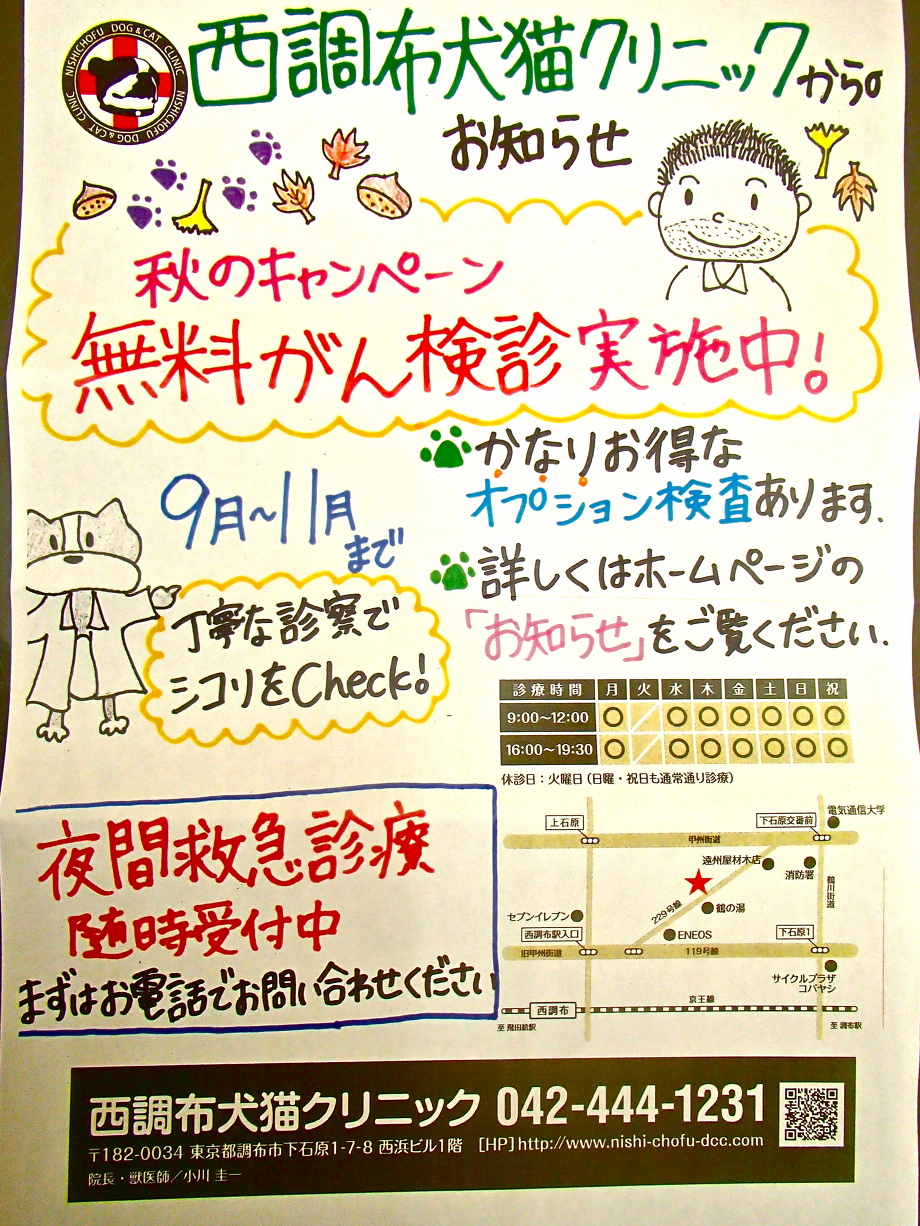 NISHICHOFU DOG & CAT CLINIC NISHICHOFU DOG & CAT CLINIC
西調布犬猫クリニックから
お知らせ
秋のキャンペーン
無料がん検診実施中!
かなりお得な
オプション検査あります.
9月~11月
まで
詳しくはホームページの
「お知らせ」をご覧ください.
丁寧な診察で
シコリをCheck!
診療時間 月 火 水 木 金 土 日 祝
9:00~12:00 ○ / ○ ○ ○ ○ ○ ○
16:00~19:30 ○ / ○ ○ ○ ○ ○ ○
休診日:火曜日(日曜・祝日も通常通り診療)
夜間救急診療
随時受付中
まずはお電話でお問い合わせください
電気通信大学
上石原
下石原交番前
甲州街道
遠州屋材木店
消防署
鶴川街道
229号線
鶴の湯
セブンイレブン
西調布駅入口
ENEOS
下石原1
旧甲州街道
119号線
サイクルプラザ
コバヤシ
西調布
京王線
至 飛田給駅
至 調布駅
西調布犬猫クリニック 042-444-1231
〒182-0034 東京都調布市下石原1-7-8 西浜ビル1階 [HP]http://www.nishi-chofu-dcc.com
院長・獣医師/小川 圭一